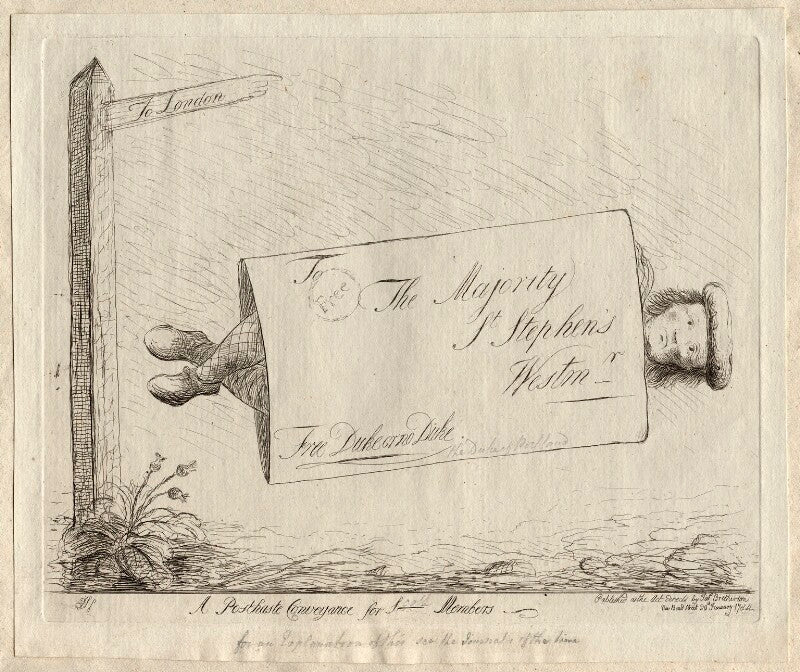 To London
To
Free
The Majority
St Stephen's
Westmr
Free Duke or no Duke
the Duke of
A Posthaste Conveyance for S Members
Published as the Act directs by Jas Bretherton
New Bond Street 26 January 1784
for an Explanation of this see the Journals of the time